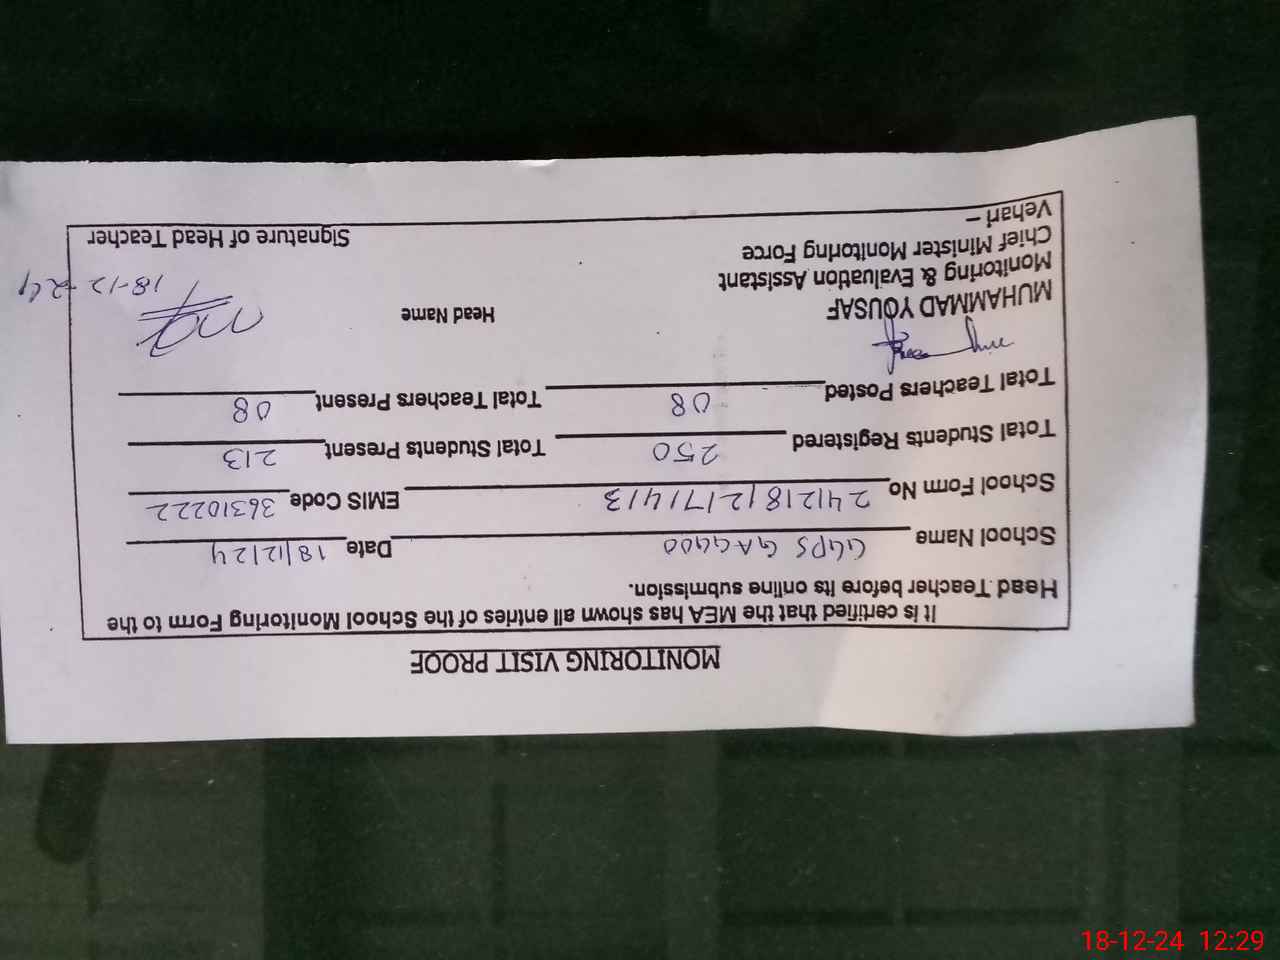 MONITORING VISIT PROOF
It is certified that the MEA has shown all entries of the School Monitoring Form to the
Head Teacher before its online submission.
School Name GGPS GAGGOO Date 18/12/24
School Form No 241218121714/3 EMIS Code 36310222
Total Students Registered 250 Total Students Present 213
Total Teachers Posted 08 Total Teachers Present 08
MUHAMMAD YOUSAF Head Name
Monitoring & Evaluation Assistant
18-12-24
Chief Minister Monitoring Force
Vehari – Signature of Head Teacher
18-12-24 12:29